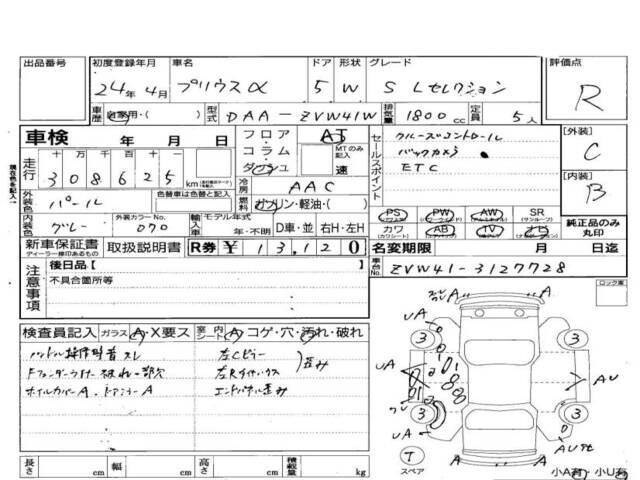 出品番号 初度登録年月 車名 ドア 形状 グレード 評価点
24年 4月 プリウスα 5 W S Lセレクション R
車歴 自家用・( ) 型式 DAA-ZVW41W 排気量 1800 cc 定員 5人
車検 年 月 日 フロア AT セールスポイント クルーズコントロール [外装] C
走行 十万 万 千 百 十 コラム MTのみ記入 バックカメラ
308625 km ダッシュ 速 ETC [内装] B
外装色 パール 色替車は色替と記入 冷房 AAC
燃料 ガソリン・軽油・( ) PS PW AW SR 純正品のみ丸印
内装色 グレー 外装カラーNo. 070 輸入車 モデル年式 年・不明 D車・並 右H・左H カワ AB TV ナビ
新車保証書 取扱説明書 R券 ¥ 13,120 名変期限 月 日迄
ディーラー捺印あるもの
車台No. ZVW41-3127728
注意事項 後日品【 】
不具合箇所等
ロック車
検査員記入 ガラス A・X要ス 室内 シート A コゲ・穴・汚れ・破れ
ハンドル スレ 左Cピラー
Fフェンダーライナー破れ一部欠 歪み
ホイルカバーA、ドアミラーA エンドパネル歪み
長さ cm 幅 cm 高さ cm 積載量 kg
A A
UA 3 3
UA AU
3 3
UA AU
T スペア A A
小A有・小U有
現在色を記入